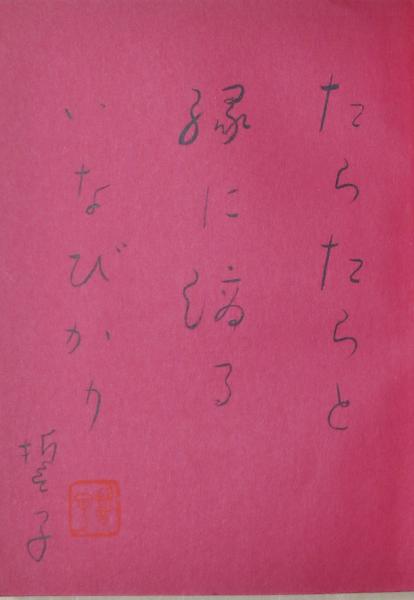 たらたらと
縁に滴る
いなびかり
誓子